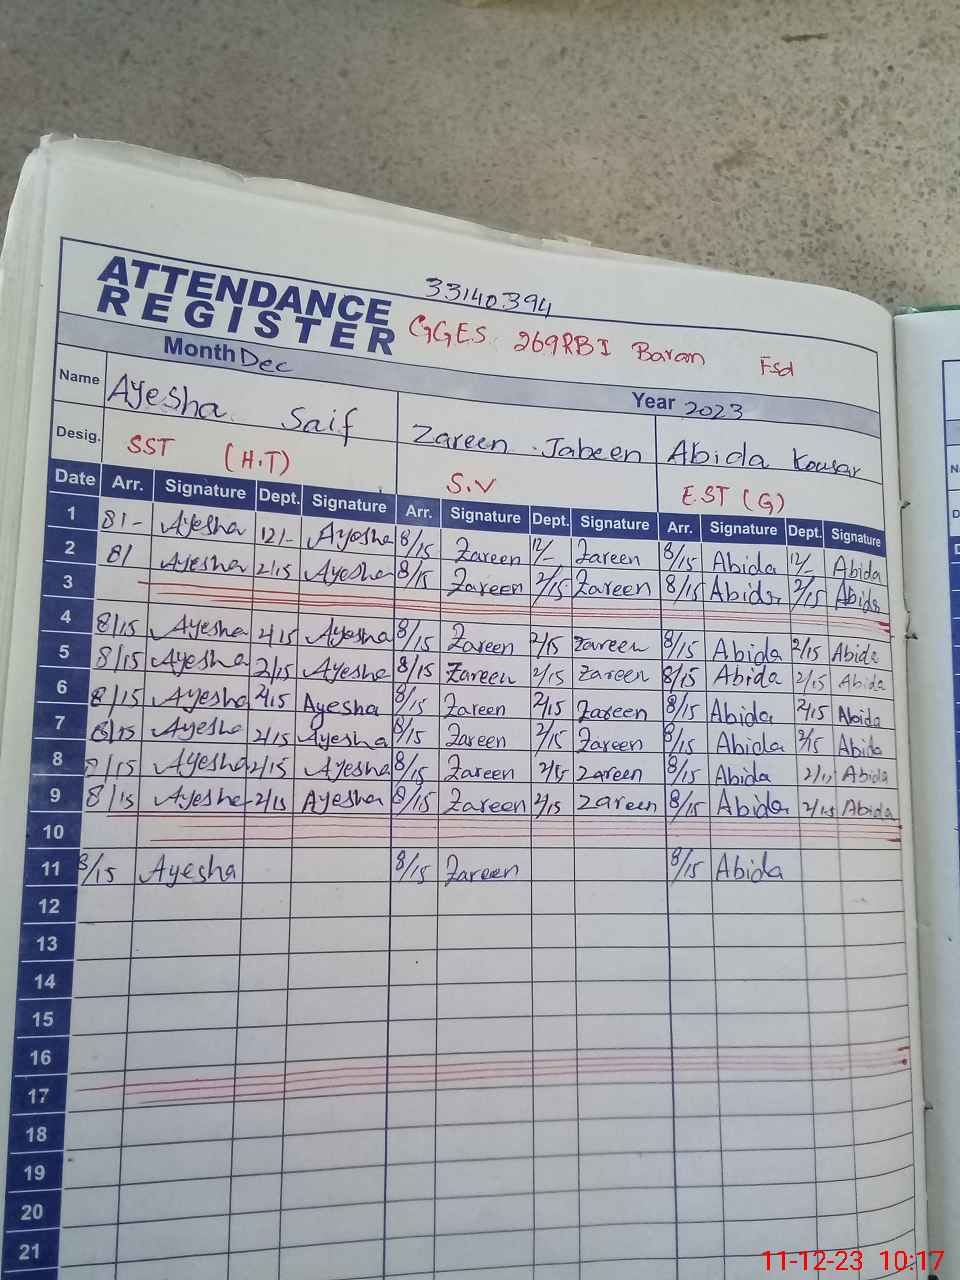 33140394
ATTENDANCE
REGISTER
GGES 269RBI Baran Fsd
Month Dec
Year 2023
Name Ayesha Saif Zareen Jabeen Abida Kousar
Desig. SST (H.T) S.V E.ST (G)
Date Arr. Signature Dept. Signature Arr. Signature Dept. Signature Arr. Signature Dept. Signature
1 8/- Ayesha 12/- Ayesha 8/15 Zareen 12/- Zareen 8/15 Abida 12/- Abida
2 8/ Ayesha 2/15 Ayesha 8/15 Zareen 2/15 Zareen 8/15 Abida 2/15 Abida
3
4 8/15 Ayesha 2/15 Ayesha 8/15 Zareen 2/15 Zareen 8/15 Abida 2/15 Abida
5 8/15 Ayesha 2/15 Ayesha 8/15 Zareen 2/15 Zareen 8/15 Abida 2/15 Abida
6 8/15 Ayesha 2/15 Ayesha 8/15 Zareen 2/15 Zareen 8/15 Abida 2/15 Abida
7 8/15 Ayesha 2/15 Ayesha 8/15 Zareen 2/15 Zareen 8/15 Abida 2/5 Abida
8 8/15 Ayesha 2/15 Ayesha 8/15 Zareen 2/15 Zareen 8/15 Abida Abida
9 8/15 Ayesha 2/15 Ayesha 8/15 Zareen 2/15 Zareen 8/15 Abida 2/15 Abida
10
11 8/15 Ayesha 8/15 Zareen 8/15 Abida
12
13
14
15
16
17
18
19
20
21
11-12-23 10:17